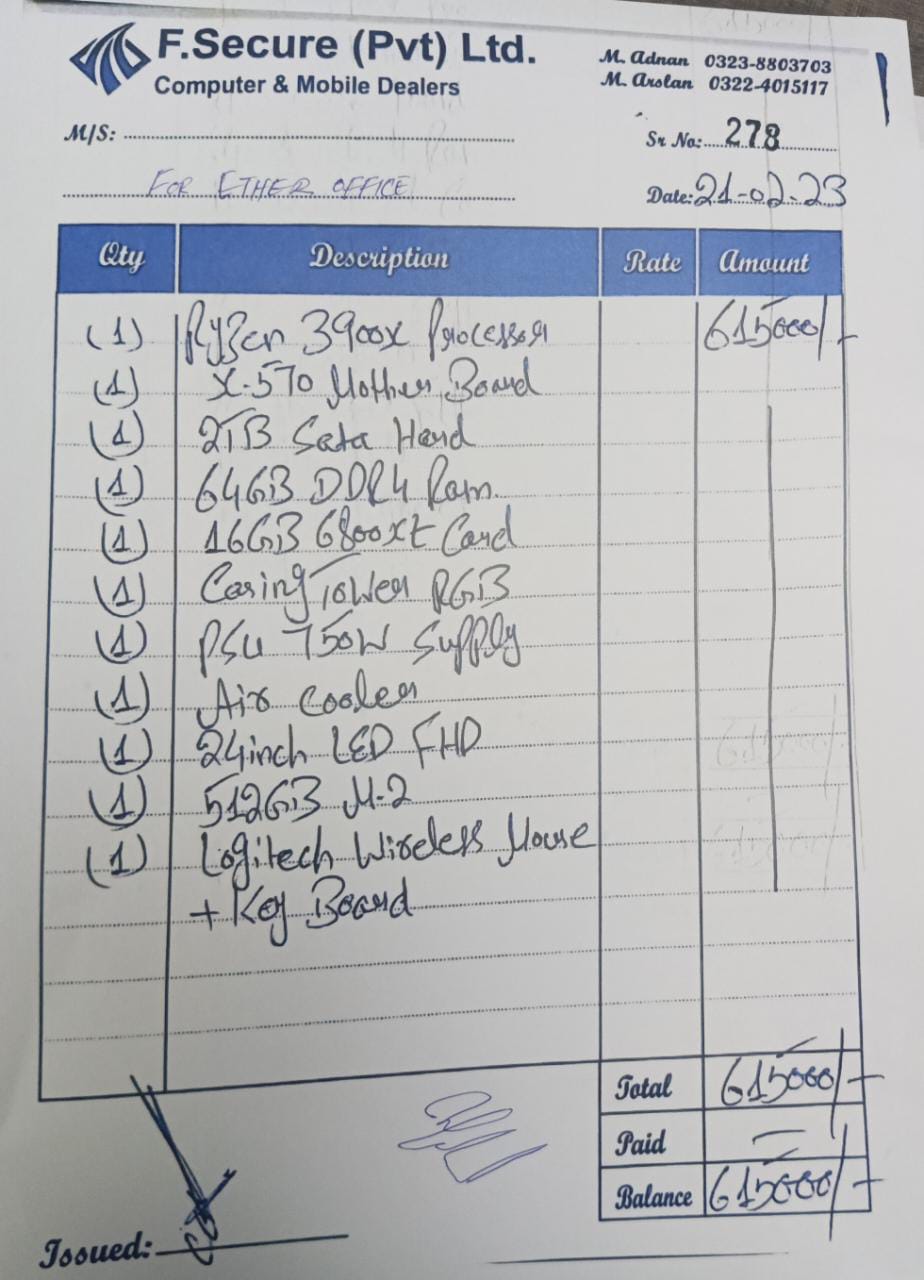 F.Secure (Pvt) Ltd.
Computer & Mobile Dealers
M. Adnan 0323-8803703
M. Arslan 0322-4015117
M/S:
Sr No: 278
FOR ETHER OFFICE
Date: 21-02-23
Qty Description Rate Amount
(1) Ryzen 3900x Processor 615000/-
(1) X-570 Mother Board
(1) 2TB Sata Hard
(1) 64GB DDR4 Ram
(1) 16GB 6800xt Card
(1) Casing Tower RGB
(1) PSU 750W Supply
(1) Air Cooler
(1) 24inch LED FHD
(1) 512GB M-2
(1) Logitech Wireless Mouse
+ Key Board
Total 615000/-
Paid —
Balance 615000/-
Issued: